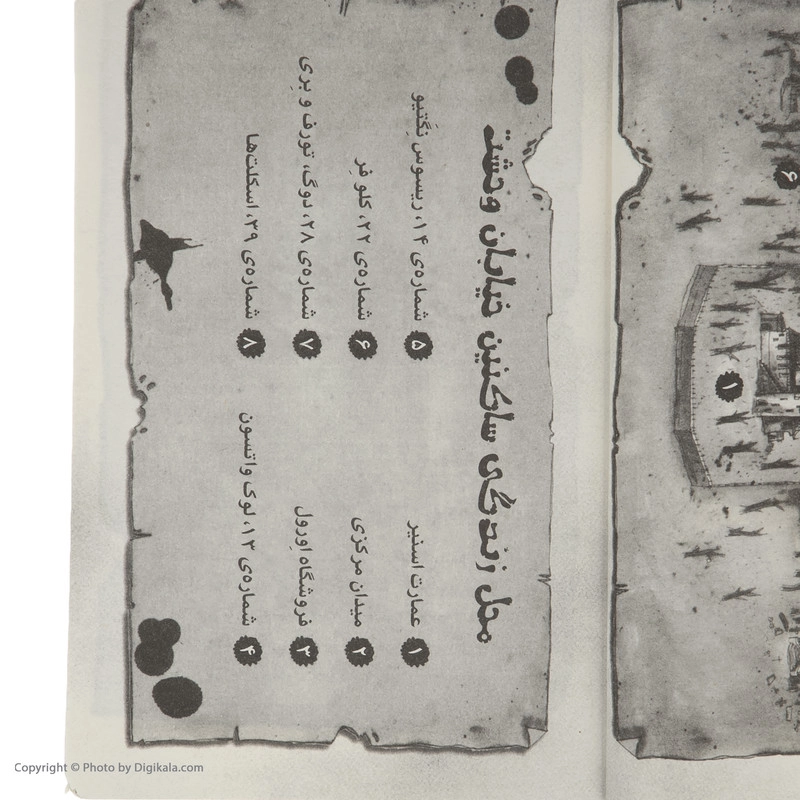 محل زندگی ساکنین خیابان وحشت
۱ عمارت اسنیر
۲ میدان مرکزی
۳ فروشگاه اِورول
۴ شماره‌ی ۱۳، لوک واتسون
۵ شماره‌ی ۱۴، ریسوس نِگَتیو
۶ شماره‌ی ۲۲، کلو فِر
۷ شماره‌ی ۲۸، دوگ، تورف و بِری
۸ شماره‌ی ۳۹، اسکلت‌ها
۶
۱
Copyright © Photo by Digikala.com